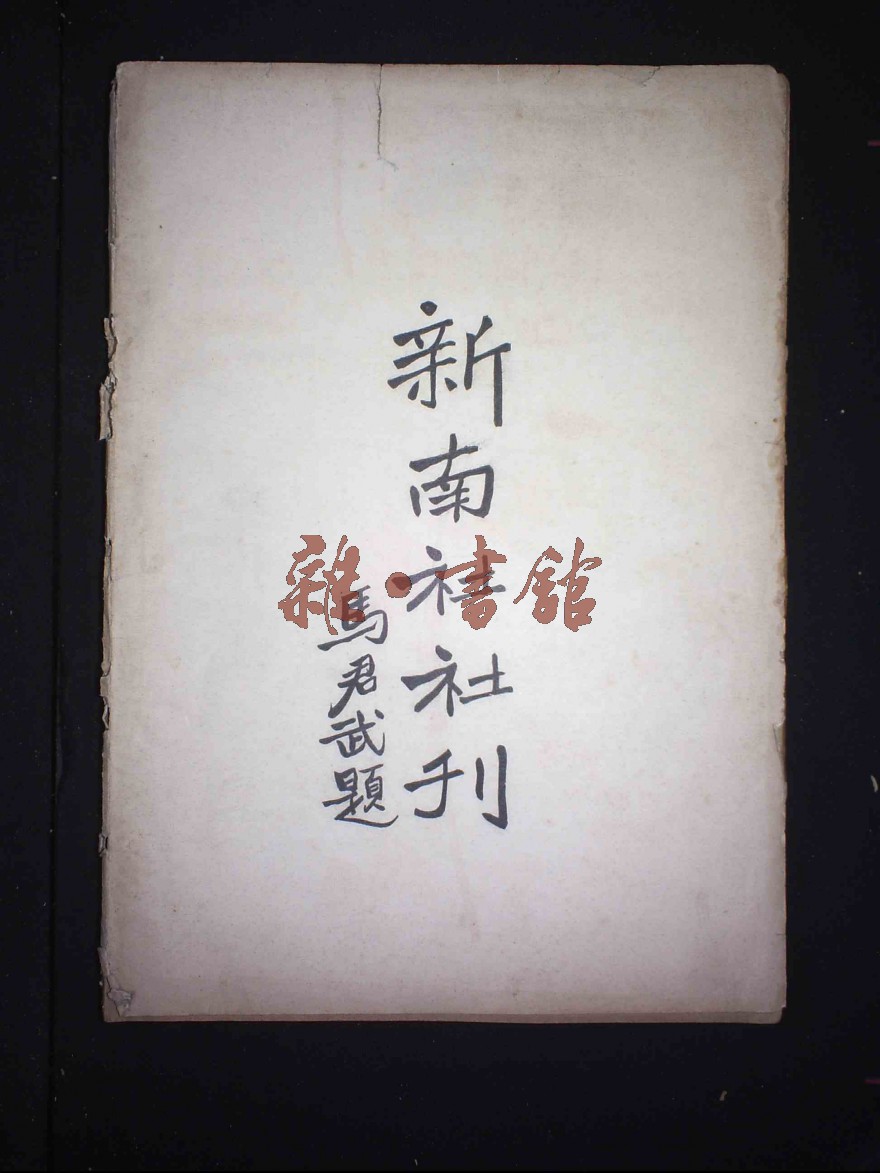 新南社社刊
馬君武題
雜·書館